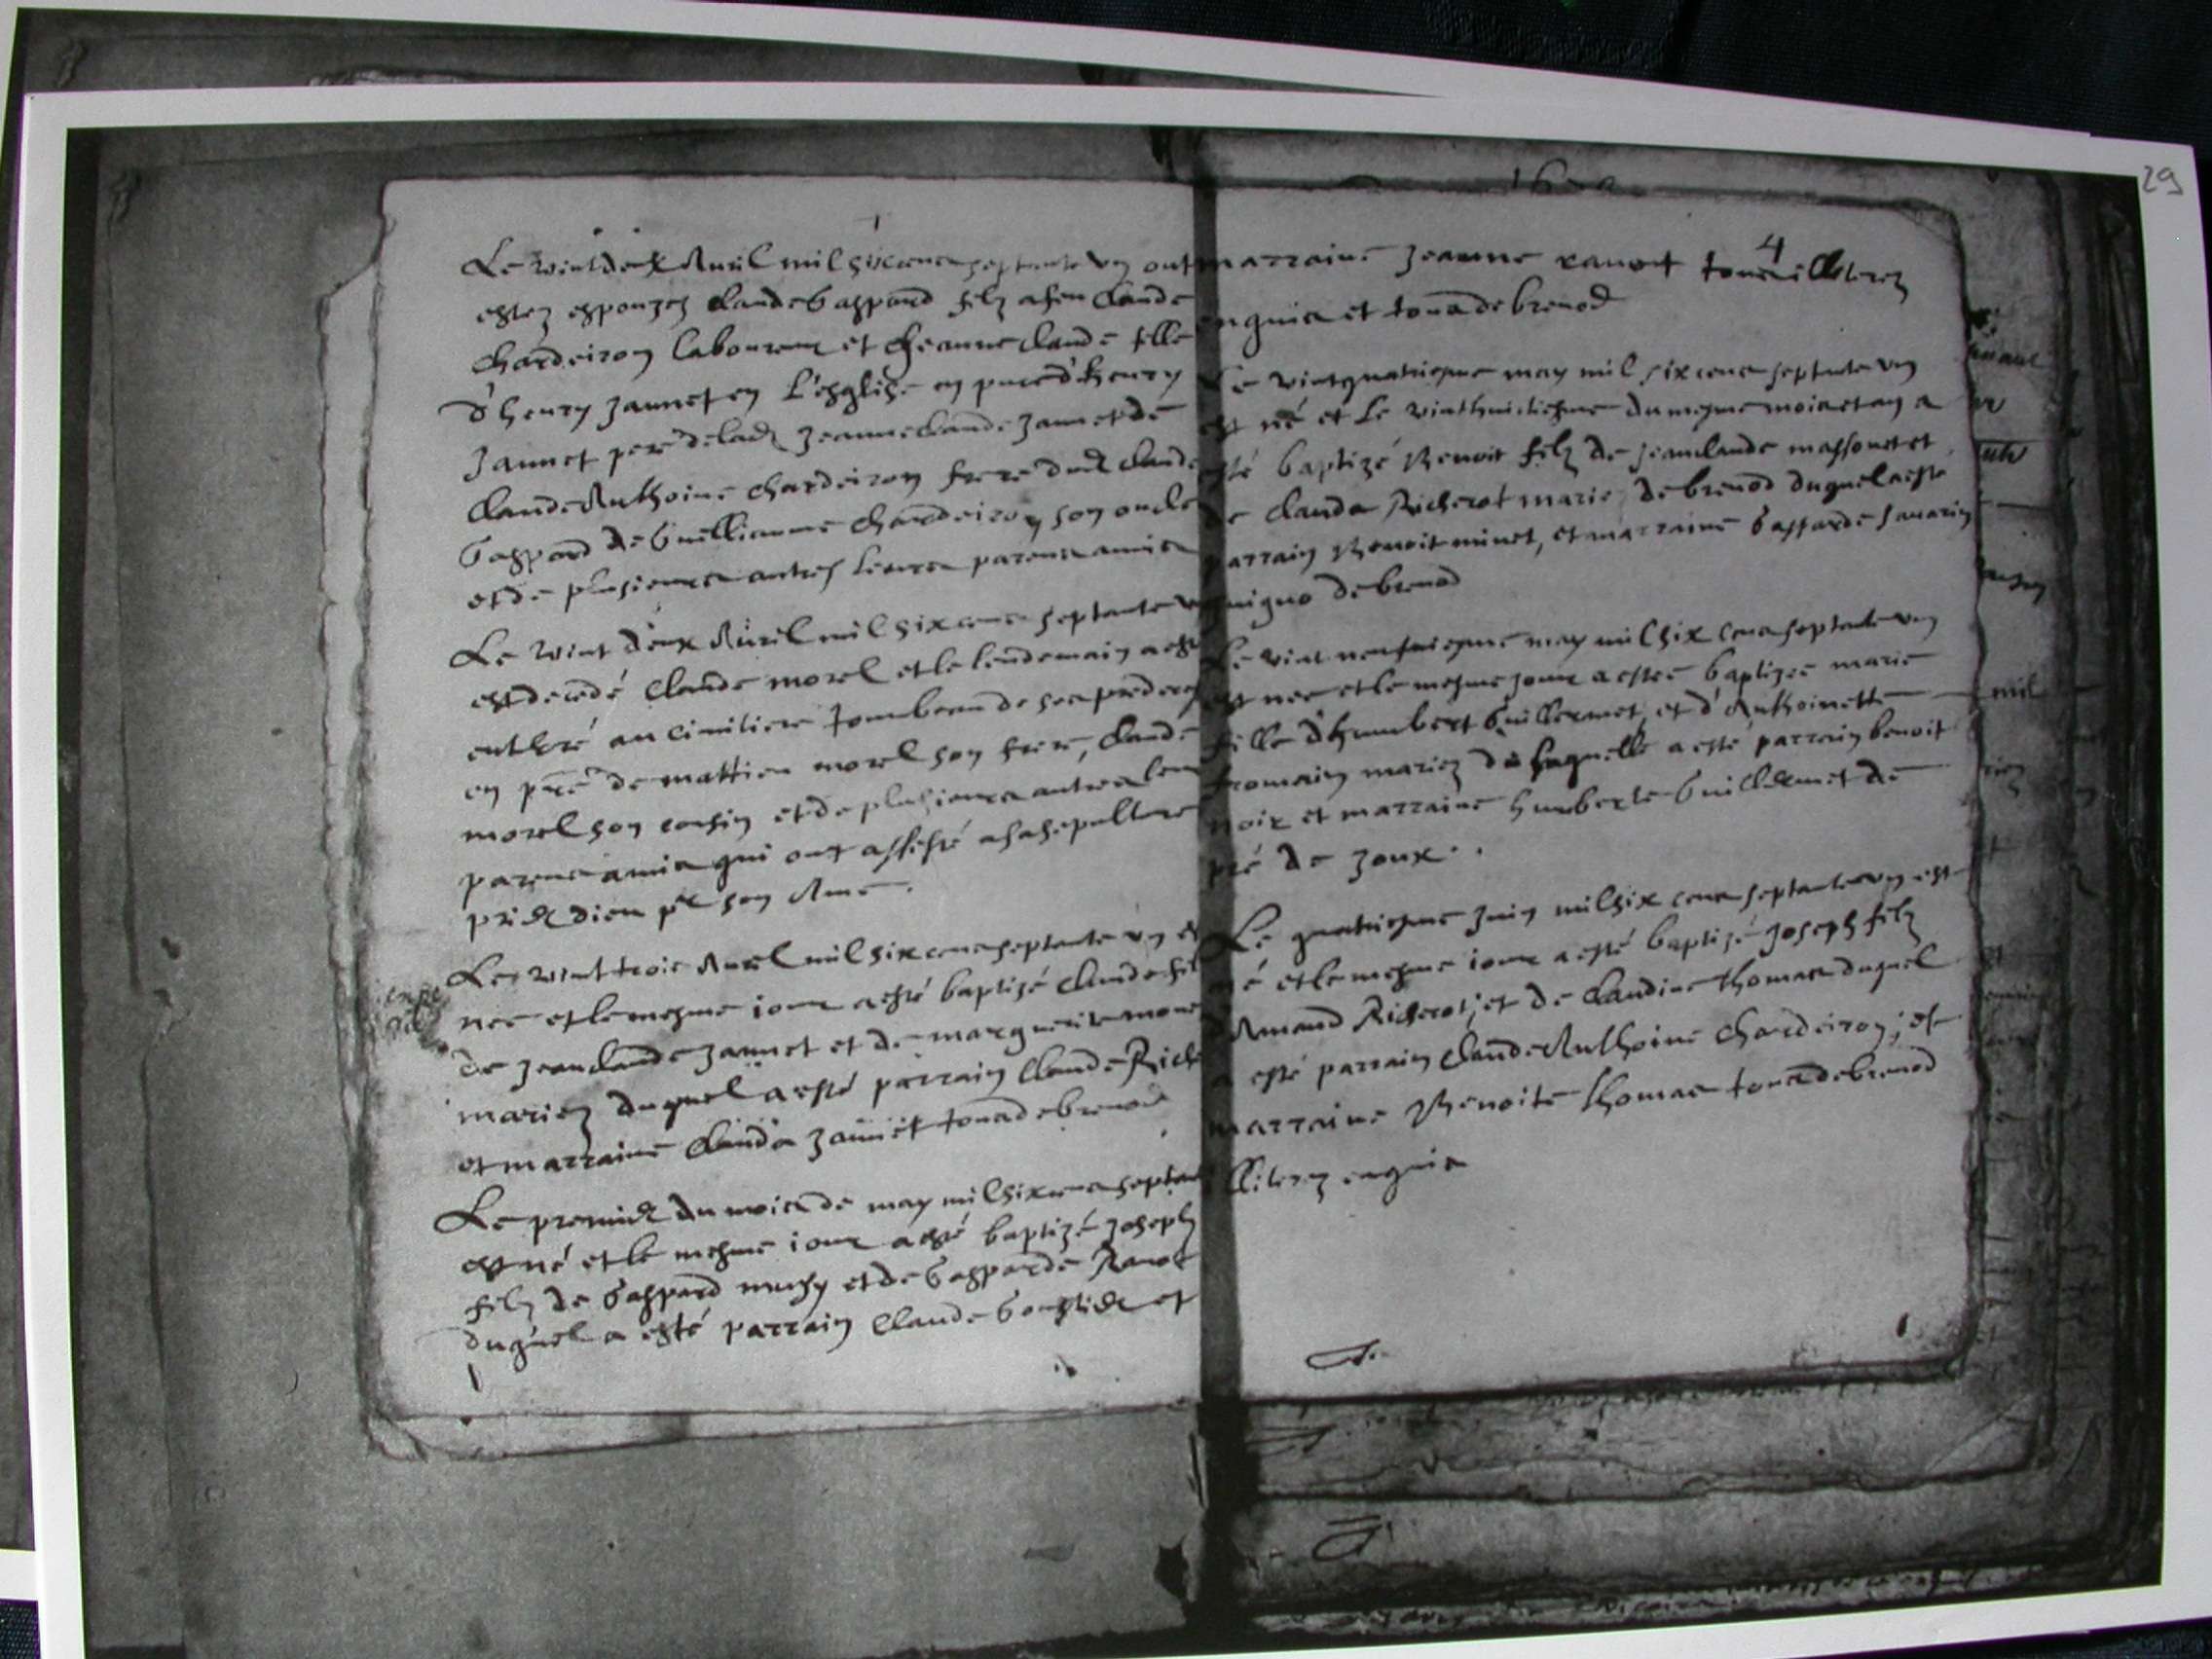 Le vint deux Auril mil six cens septante vn ont
estez espousez Claude Gaspard filz a feu Claude
Chardeiron laboureur et Jeanne Claude fille
d'henry Jannet en l'esglise en pnce d'henry
Jannet pere de lad Jeanne Claude Jannet de
Claude Anthoine Chardeiron frere dud Claude
Gaspard de Guillianme Chardeiron son oncle
et de plusieurs autres leurs parens amis
Le vint deux Auril mil six cens septante vn
est decedé Claude morel et le lendemain a esté
entheré au cimitiere tombeau de ses predeces
en pnce de mattieu morel son frere, Claude
morel son cousin et de plusieurs autres leurs
parens amis qui ont assisté a sa sepulture
priez dieu pr son Ame.
Le vint trois Auril mil six cens septante vn es
nee et le mesme iour a esté baptizé Claude fil
de Jean Claude Jannet et de marguerite more
mariez duquel a esté parrain Claude Riche
et marraine Clauda Jannet tous de brenod
Le premier du mois de may mil six cens septan
est né et le mesme iour a esté baptizé Joseph
filz de Gaspard musy et de Gasparde Rauot
duquel a esté parrain Claude et
29
4
marraine Jeanne rauot tous illiterez
enquis et tous de brenod
Le vintquatriesme may mil six cens septante vn
est né et le vinthuictiesme du mesme mois et an a
esté baptizé Benoit filz de Jean Claude massonet et
de Clauda Richerot marie de brenod duquel a esté
parrain Benoit minet, et marraine Gasparde sauarin
de brenod
Le vint neufuiesme may mil six cens septante vn
est nee et le mesme iour a estee baptizee marie
fille d'humbert Guillermet, et d'Anthoinette
romain mariez de laquelle a esté parrain benoit
noir et marraine humberte Guillermet de
pré de Joux.
Le quatriesme Juin mil six cens septante vn est
né et le mesme iour a esté baptizé Joseph filz
d'Amand Richerot, et de Claudine thomas duquel
a esté parrain Claude Anthoine Chardeiron; et
marraine Benoite thomas tous de brenod
illiterez enquis